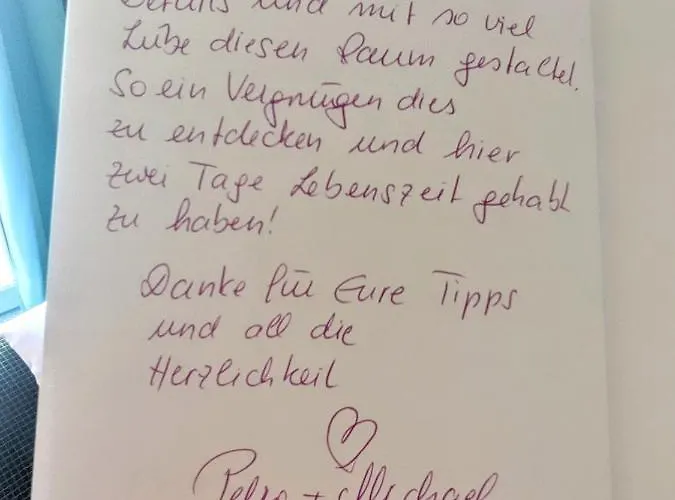 und mit so viel
Liebe diesen Raum gestaltet.
So ein Vergnügen dies
zu entdecken und hier
zwei Tage Lebenszeit gehabt
zu haben!
Danke für Eure Tipps
und all die
Herzlichkeit
+ Michael